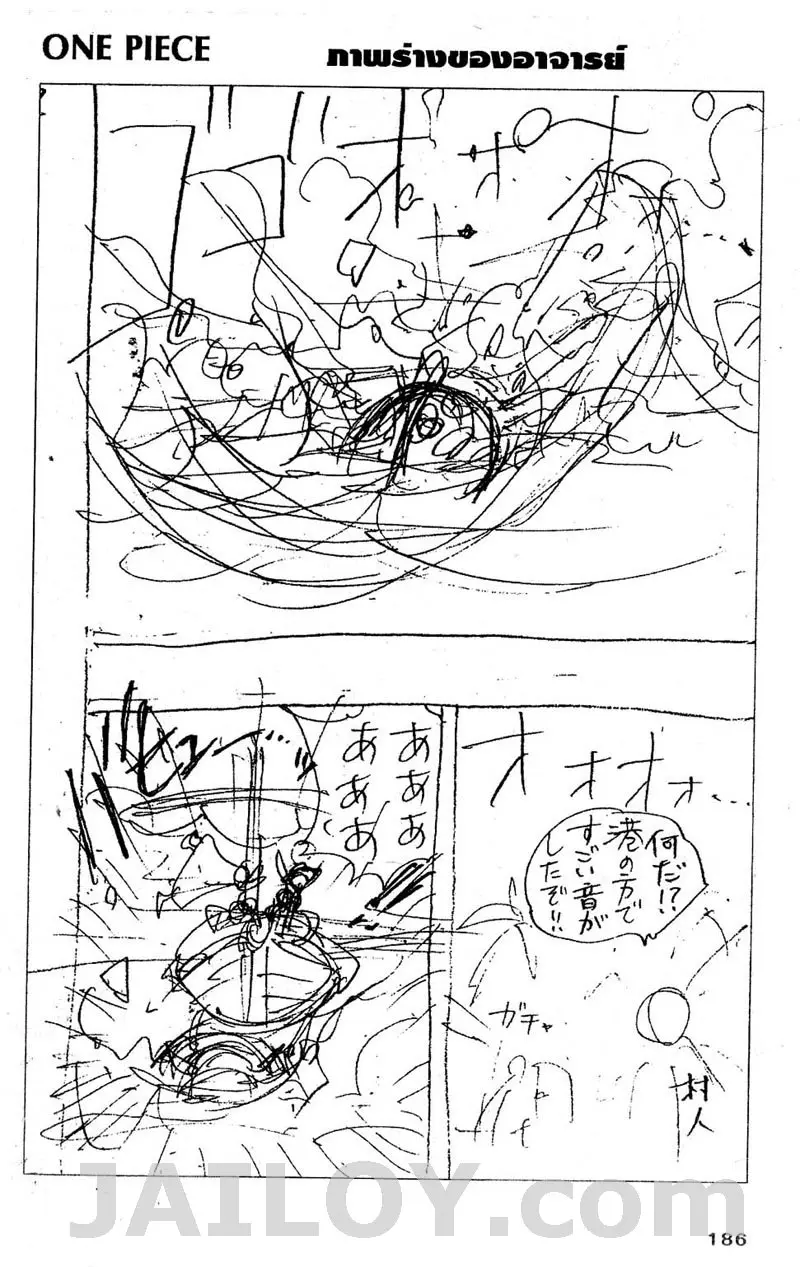 ONE PIECE
ภาพร่างของอาจารย์
オオオォ…
何だ!?
港の方で
すごい音が
したぞ!!
ガチャ
村人
あああ
あああ
JAILOY.com
186